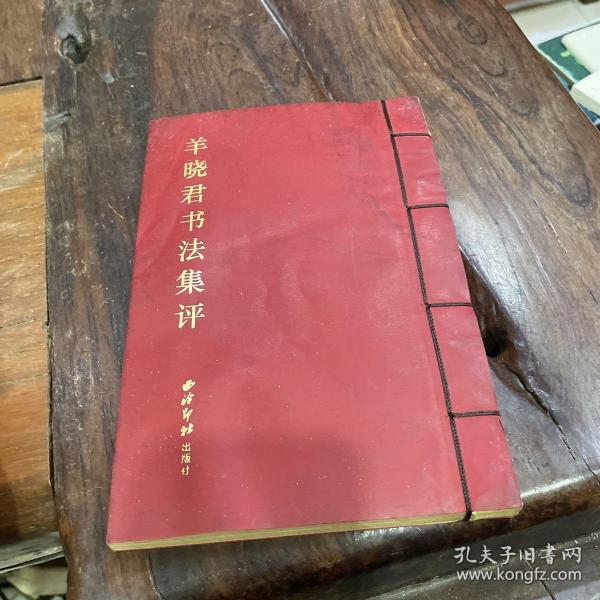 羊晓君书法集评
西泠印社
出版社
孔夫子旧书网
www.kongfz.com